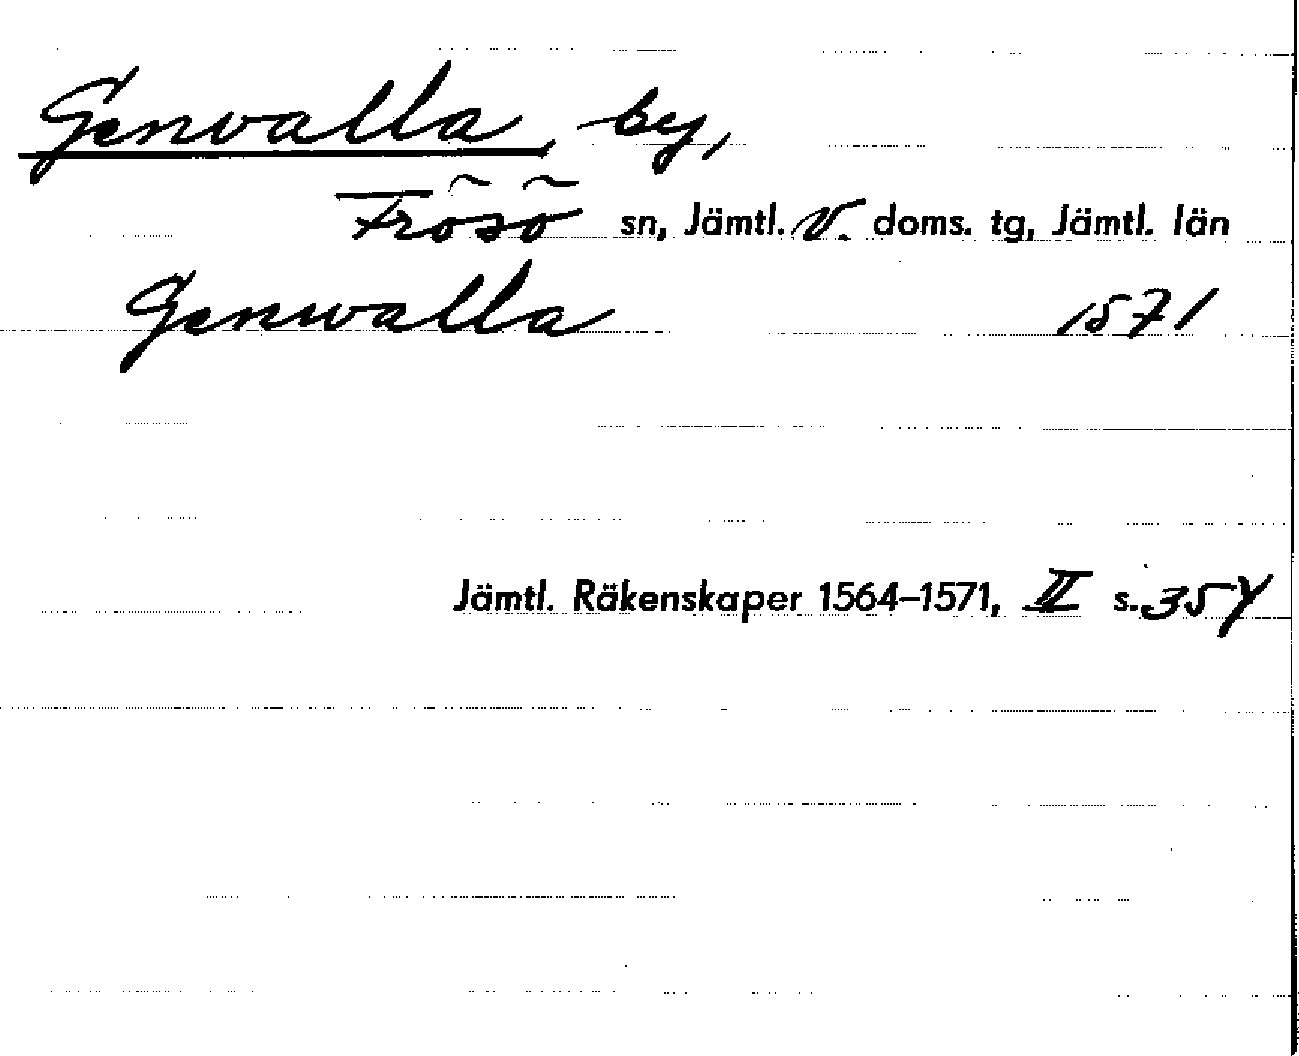 Genvalla, by,
Frösö sn, Jämtl. V. doms. tg, Jämtl. län
Genwalla 1571
Jämtl. Räkenskaper 1564–1571, II s. 354